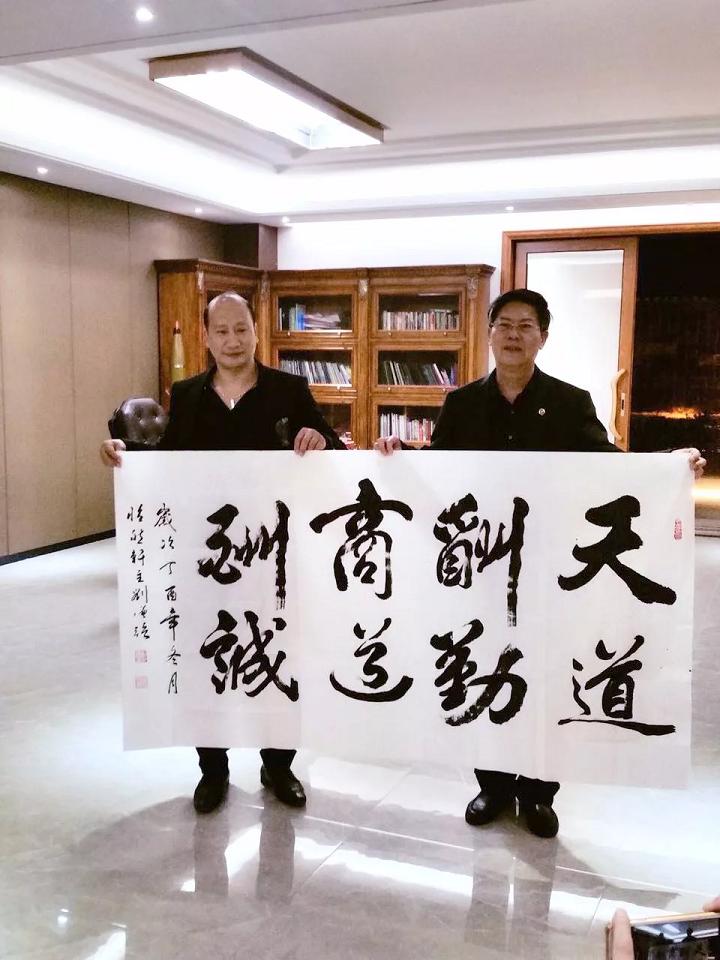 天道
酬勤
商道
酬誠
歲次丁酉年冬月
軒主劉